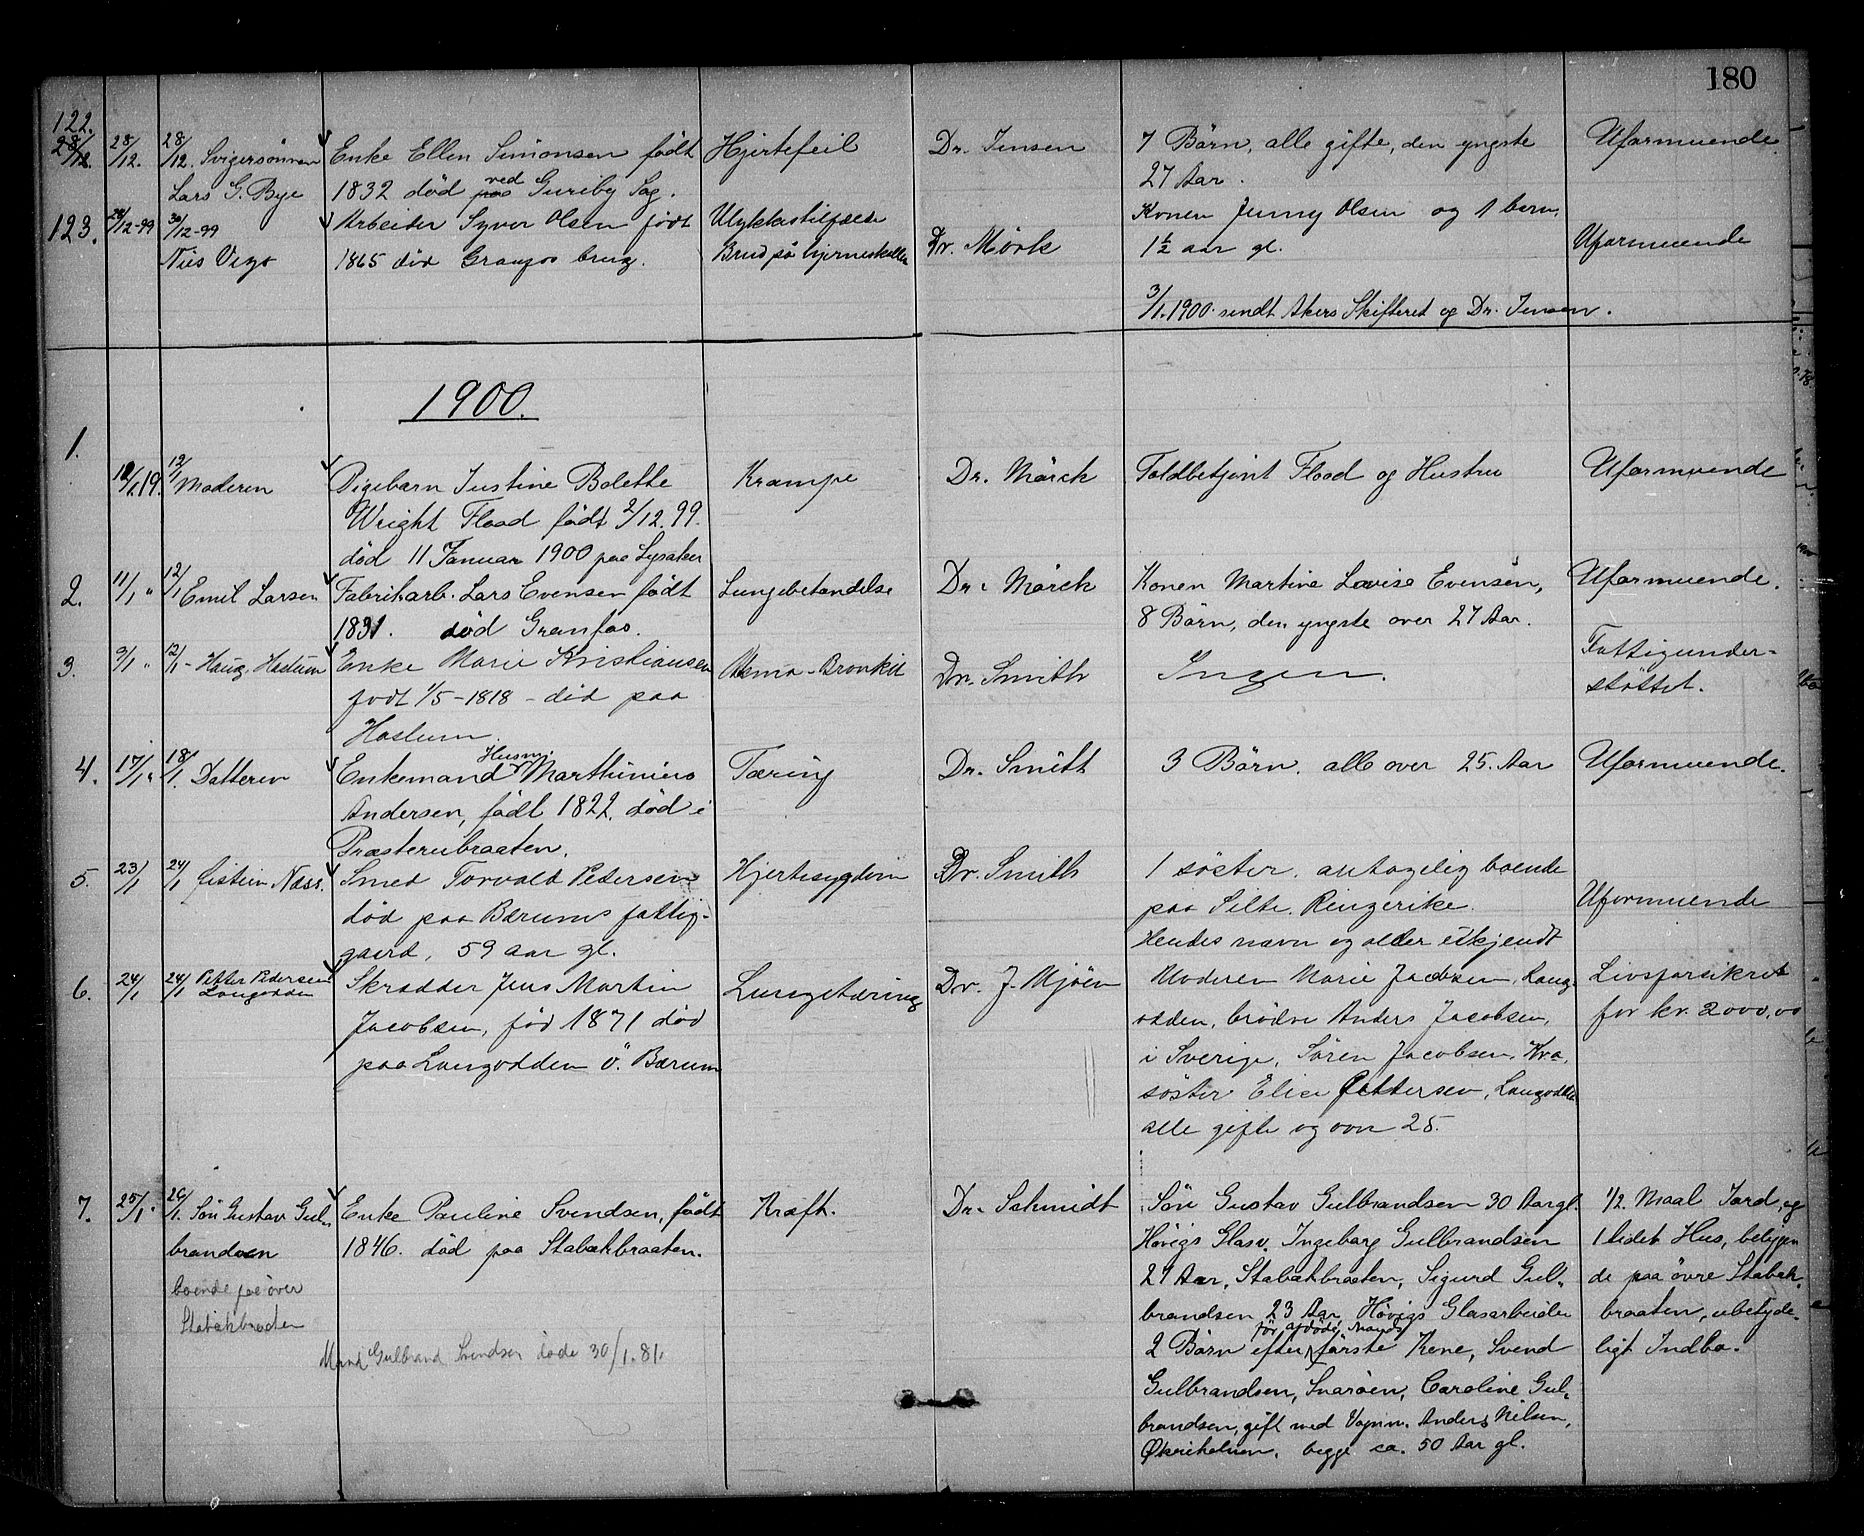 180
122.
28/12. 28/12. 28/12. Svigersönnen Enke Ellen Simonsen født Hjertefeil Dr. Jensen 7 Börn, alle gifte, den yngste Uformuende
Lars G. Bye 1832 død paa ved Gureby Sag. 27 Aar.
123. 28/12-99 30/12-99 Arbeider Syver Olsen født Ulykkestilfælde Konen Jenny Olsen og 1 barn,
Nils Vego 1865 död Granfos brug. Brud på hjerneskallen Dr. Mörk 1½ aar gl. Uformuende
3/1.1900 sendt Akers Skifteret og Dr. Jensen.
1900.
1. 12/1 19. 12/1 Moderen Pigebarn Justine Bolette Krampe Dr. Mörck Toldbetjent Flood og Hustru Uformuende
Wright Flood født 2/12.99.
død 11 Januar 1900 paa Lysaker
2. 11/1 " 12/1 Emil Larsen Fabrikarb. Lars Evensen født Lungebetændelse Dr. Mörck Konen Martine Lovise Evensen, Uformuende.
1831. død Granfos. 8 Börn, den yngste over 27 Aar.
3. 9/1 " 12/1 - Haug, Haslum Enke Marie Kristiansen Astma-Bronkit Dr. Smith Ingen. Fattigunder-
født 1/5-1818 - död paa støttet.
Haslum.
4. 17/1 " 18/1. Datteren Enkemand Husm. Marthinius Tæring Dr. Smith 3 Börn. alle over 25. Aar Uformuende.
Andersen, født 1822, død i
Præsterubraaten.
5. 23/1 24/1 Eistein Næss. Smed Torvald Pedersen Hjertesygdom Dr. Smith 1 söster, antagelig boende
död paa Bærums fattig- paa Silte. Ringerike. Uformuende
gaard, 59 aar gl. Hendes navn og alder uskjendt
6. 24/1 24/1 Petter Pedersen Skrædder Jens Martin Lungetæring Dr. J. Mjöen Moderen Marie Jacobsen, Lang- Livsforsikret
Langodden Jacobsen, fød 1871 død odden, brödre Anders Jacobsen, for kr. 2000,00
paa Langodden Ö. Bærum i Sverige, Sören Jacobsen, Kra,
söster Elise Pettersen, Langodden
alle gifte og over 25.
7. 25/1. 26/1. Sön Gustav Gul- Enke Pauline Svendsen, født Kræft. Dr. Schmidt Sön Gustav Gulbrandsen 30 Aar gl. 1/2. Maal Jord, og
brandsen 1846. død paa Stabækbraaten. Høvigs Glasv. Ingeborg Gulbrandsen 1 lidet Hus, beliggen
boende paa över 27 Aar, Stabækbraaten, Sigurd Gul- de paa övre Stabæk-
Stabækbraaten brandsen 23 Aar, Høvigs Glasarbeider braaten, ubetyde-
Mand Gulbrand Svendsen døde 30/1.81. 2 Börn efter för afdöde Mands förste Kone, Svend ligt Indbo.
Gulbrandsen, Snaröen, Caroline Gul-
brandsen, gift med Vognm. Anders Nilsen,
Økeriholmen, begge ca. 50 Aar gl.